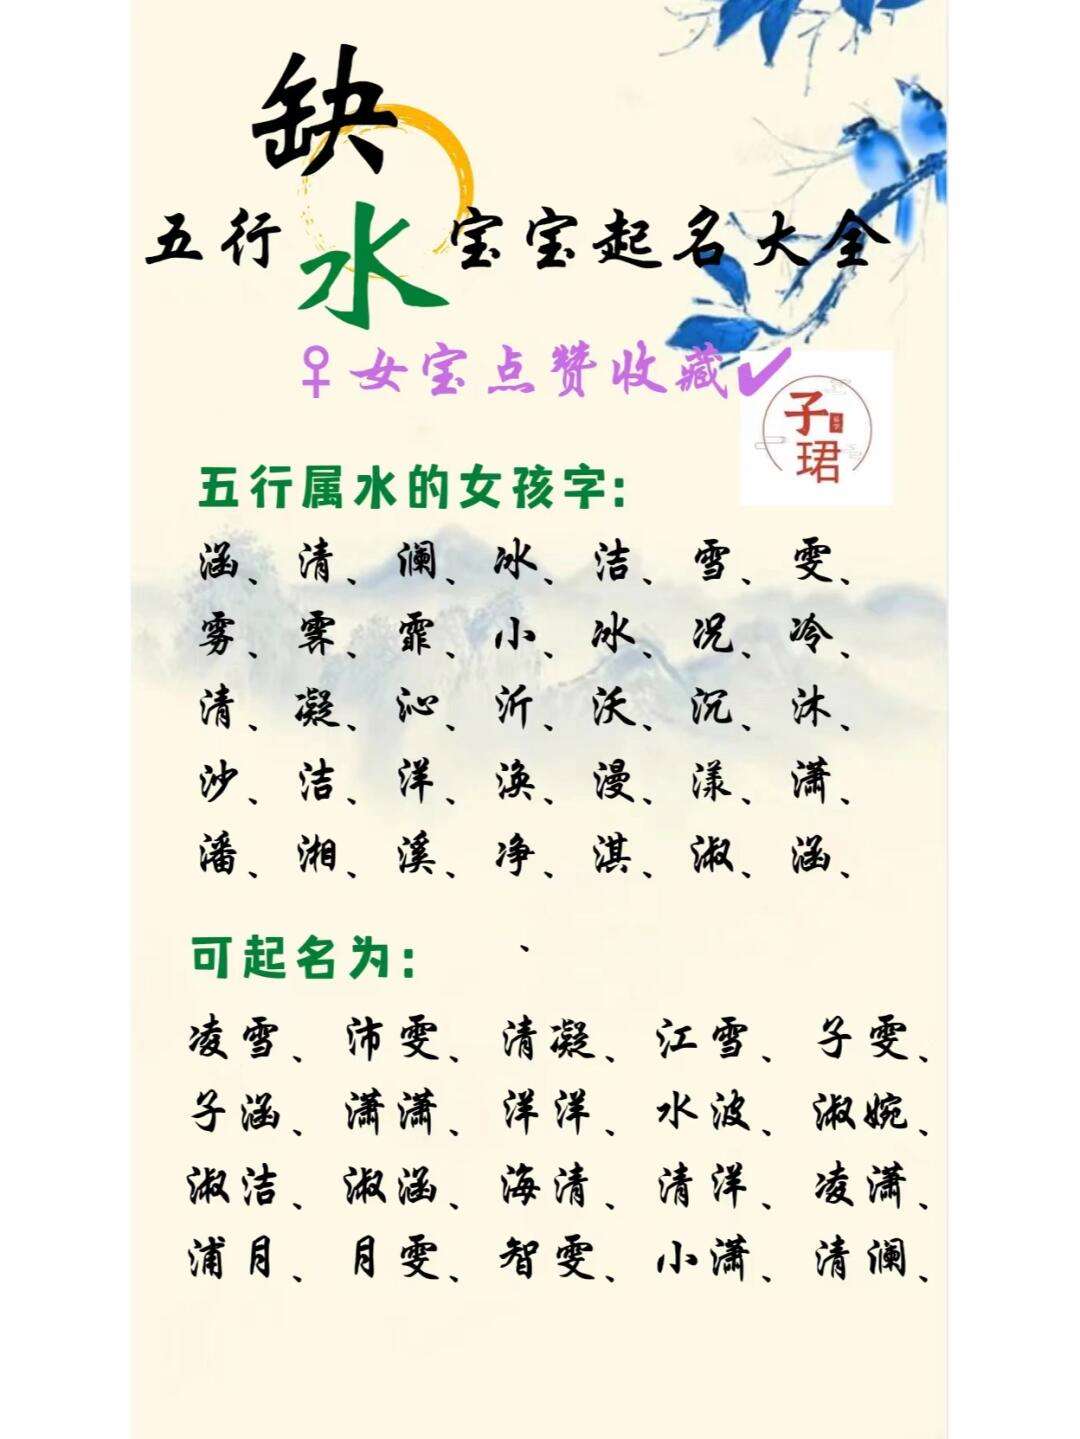 缺
五行水宝宝起名大全
♀女宝点赞收藏✔
子
珺
五行属水的女孩字:
涵、清、澜、冰、洁、雪、雯、
雾、霁、霏、小、冰、况、冷、
清、凝、沁、沂、沃、沉、沐、
沙、洁、洋、涣、漫、漾、潇、
潘、湘、溪、净、淇、淑、涵、
可起名为: 、
凌雪、沛雯、清凝、江雪、子雯、
子涵、潇潇、洋洋、水波、淑婉、
淑洁、淑涵、海清、清洋、凌潇、
浦月、月雯、智雯、小潇、清澜、